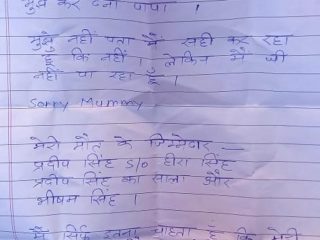 मुझे कर देना पापा ।
मुझे नहीं पता मैं सही कर रहा
हूँ कि नहीं । लेकिन मैं जी
नहीं पा रहा हूँ ।
Sorry Mummy
मेरी मौत के जिम्मेदार —
प्रदीप सिंह S/o हीरा सिंह
प्रदीप सिंह का साला और
भीषम सिंह ।
मैं सिर्फ इतना चाहता हूँ कि मेरी